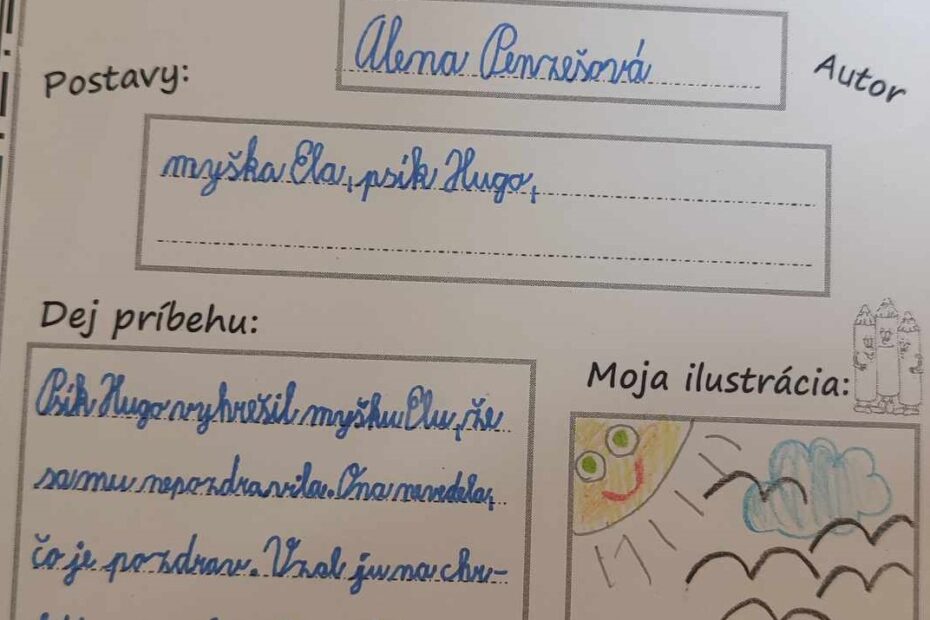 Alena Penzešová
Autor
Postavy:
myška Ela, psík Hugo,
Dej príbehu:
Psík Hugo vyhrešil myšku Elu, že
sa mu nepozdravila. Ona nevedela,
čo je pozdrav. Vzal ju na chr-
Moja ilustrácia: